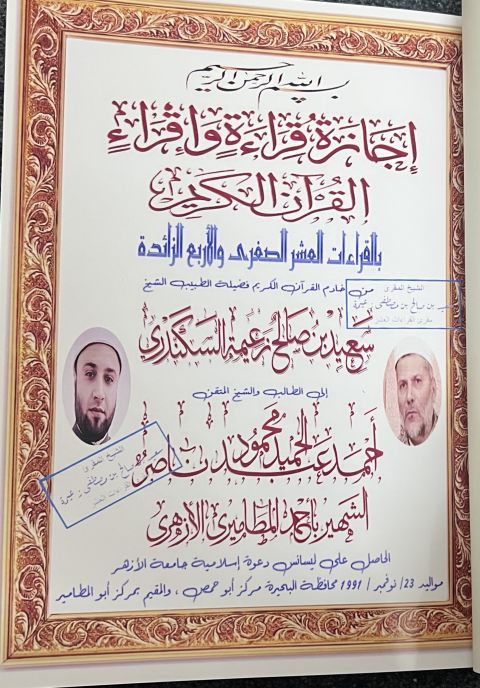 بسم الله الرحمن الرحيم
إجازة قراءةٍ وإقراءٍ
القرآن الكريم
بالقراءات العشر الصغرى والأربع الزائدة
من خادم القرآن الكريم فضيلة الطبيب الشيخ
الشيخ المقرئ
سعيد بن صالح بن مصطفى زعيمة
مقرئ القراءات العشر
سعيد بن صالح زعيمة السكندري
إلى الطالب والشيخ المتقن
أحمد عبد الحميد محمود ناصر
الشيخ المقرئ
سعيد بن صالح بن مصطفى زعيمة
الشهير بأحمد المطاميري الأزهري
الحاصل على ليسانس دعوة إسلامية جامعة الأزهر
مواليد 23/ نوفمبر / 1991 محافظة البحيرة مركز أبو حمص ، والمقيم بمركز أبو المطامير